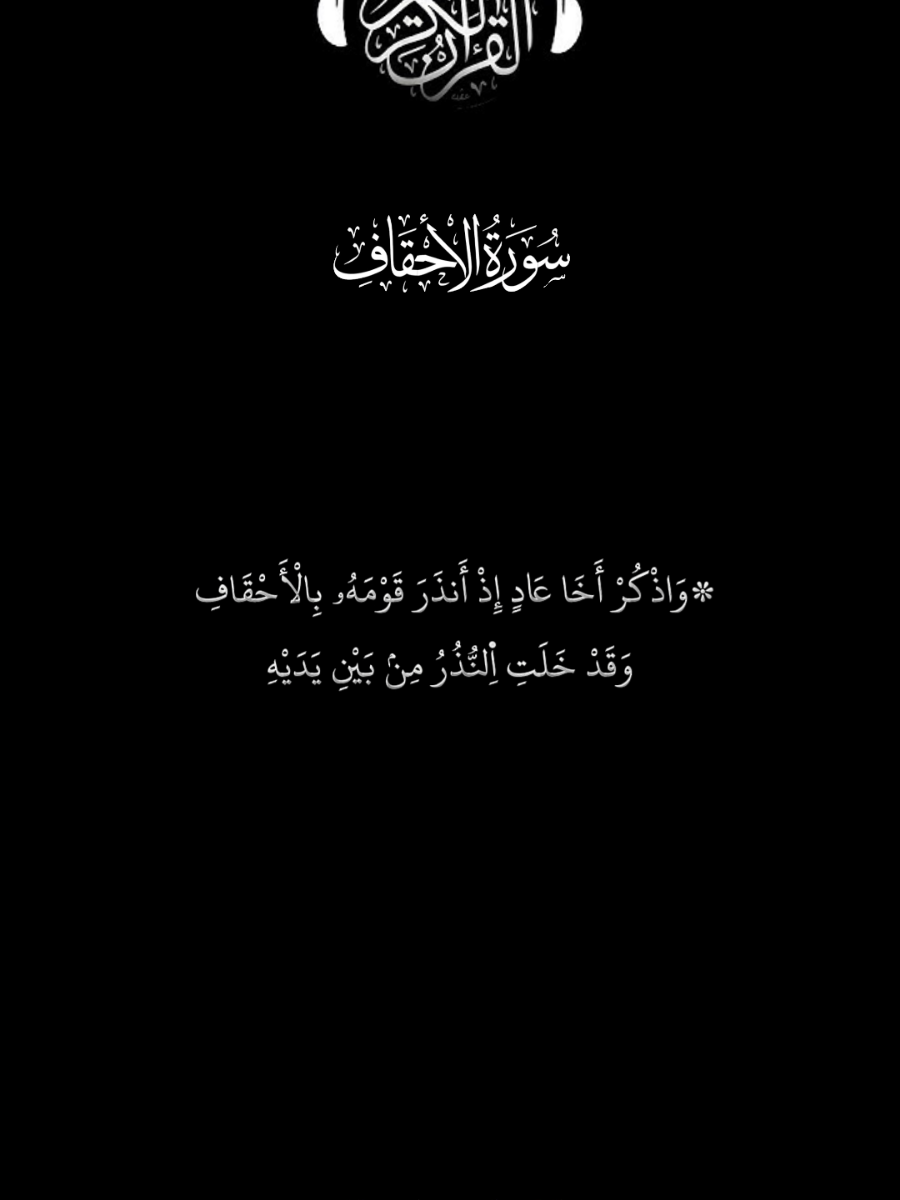 القرآن الكريم
سُورَةُ الأَحْقَافِ
*وَاذْكُرْ أَخَا عَادٍ إِذْ أَنذَرَ قَوْمَهُۥ بِالْأَحْقَافِ
وَقَدْ خَلَتِ اِ۬لنُّذُرُ مِنۢ بَيْنِ يَدَيْهِ